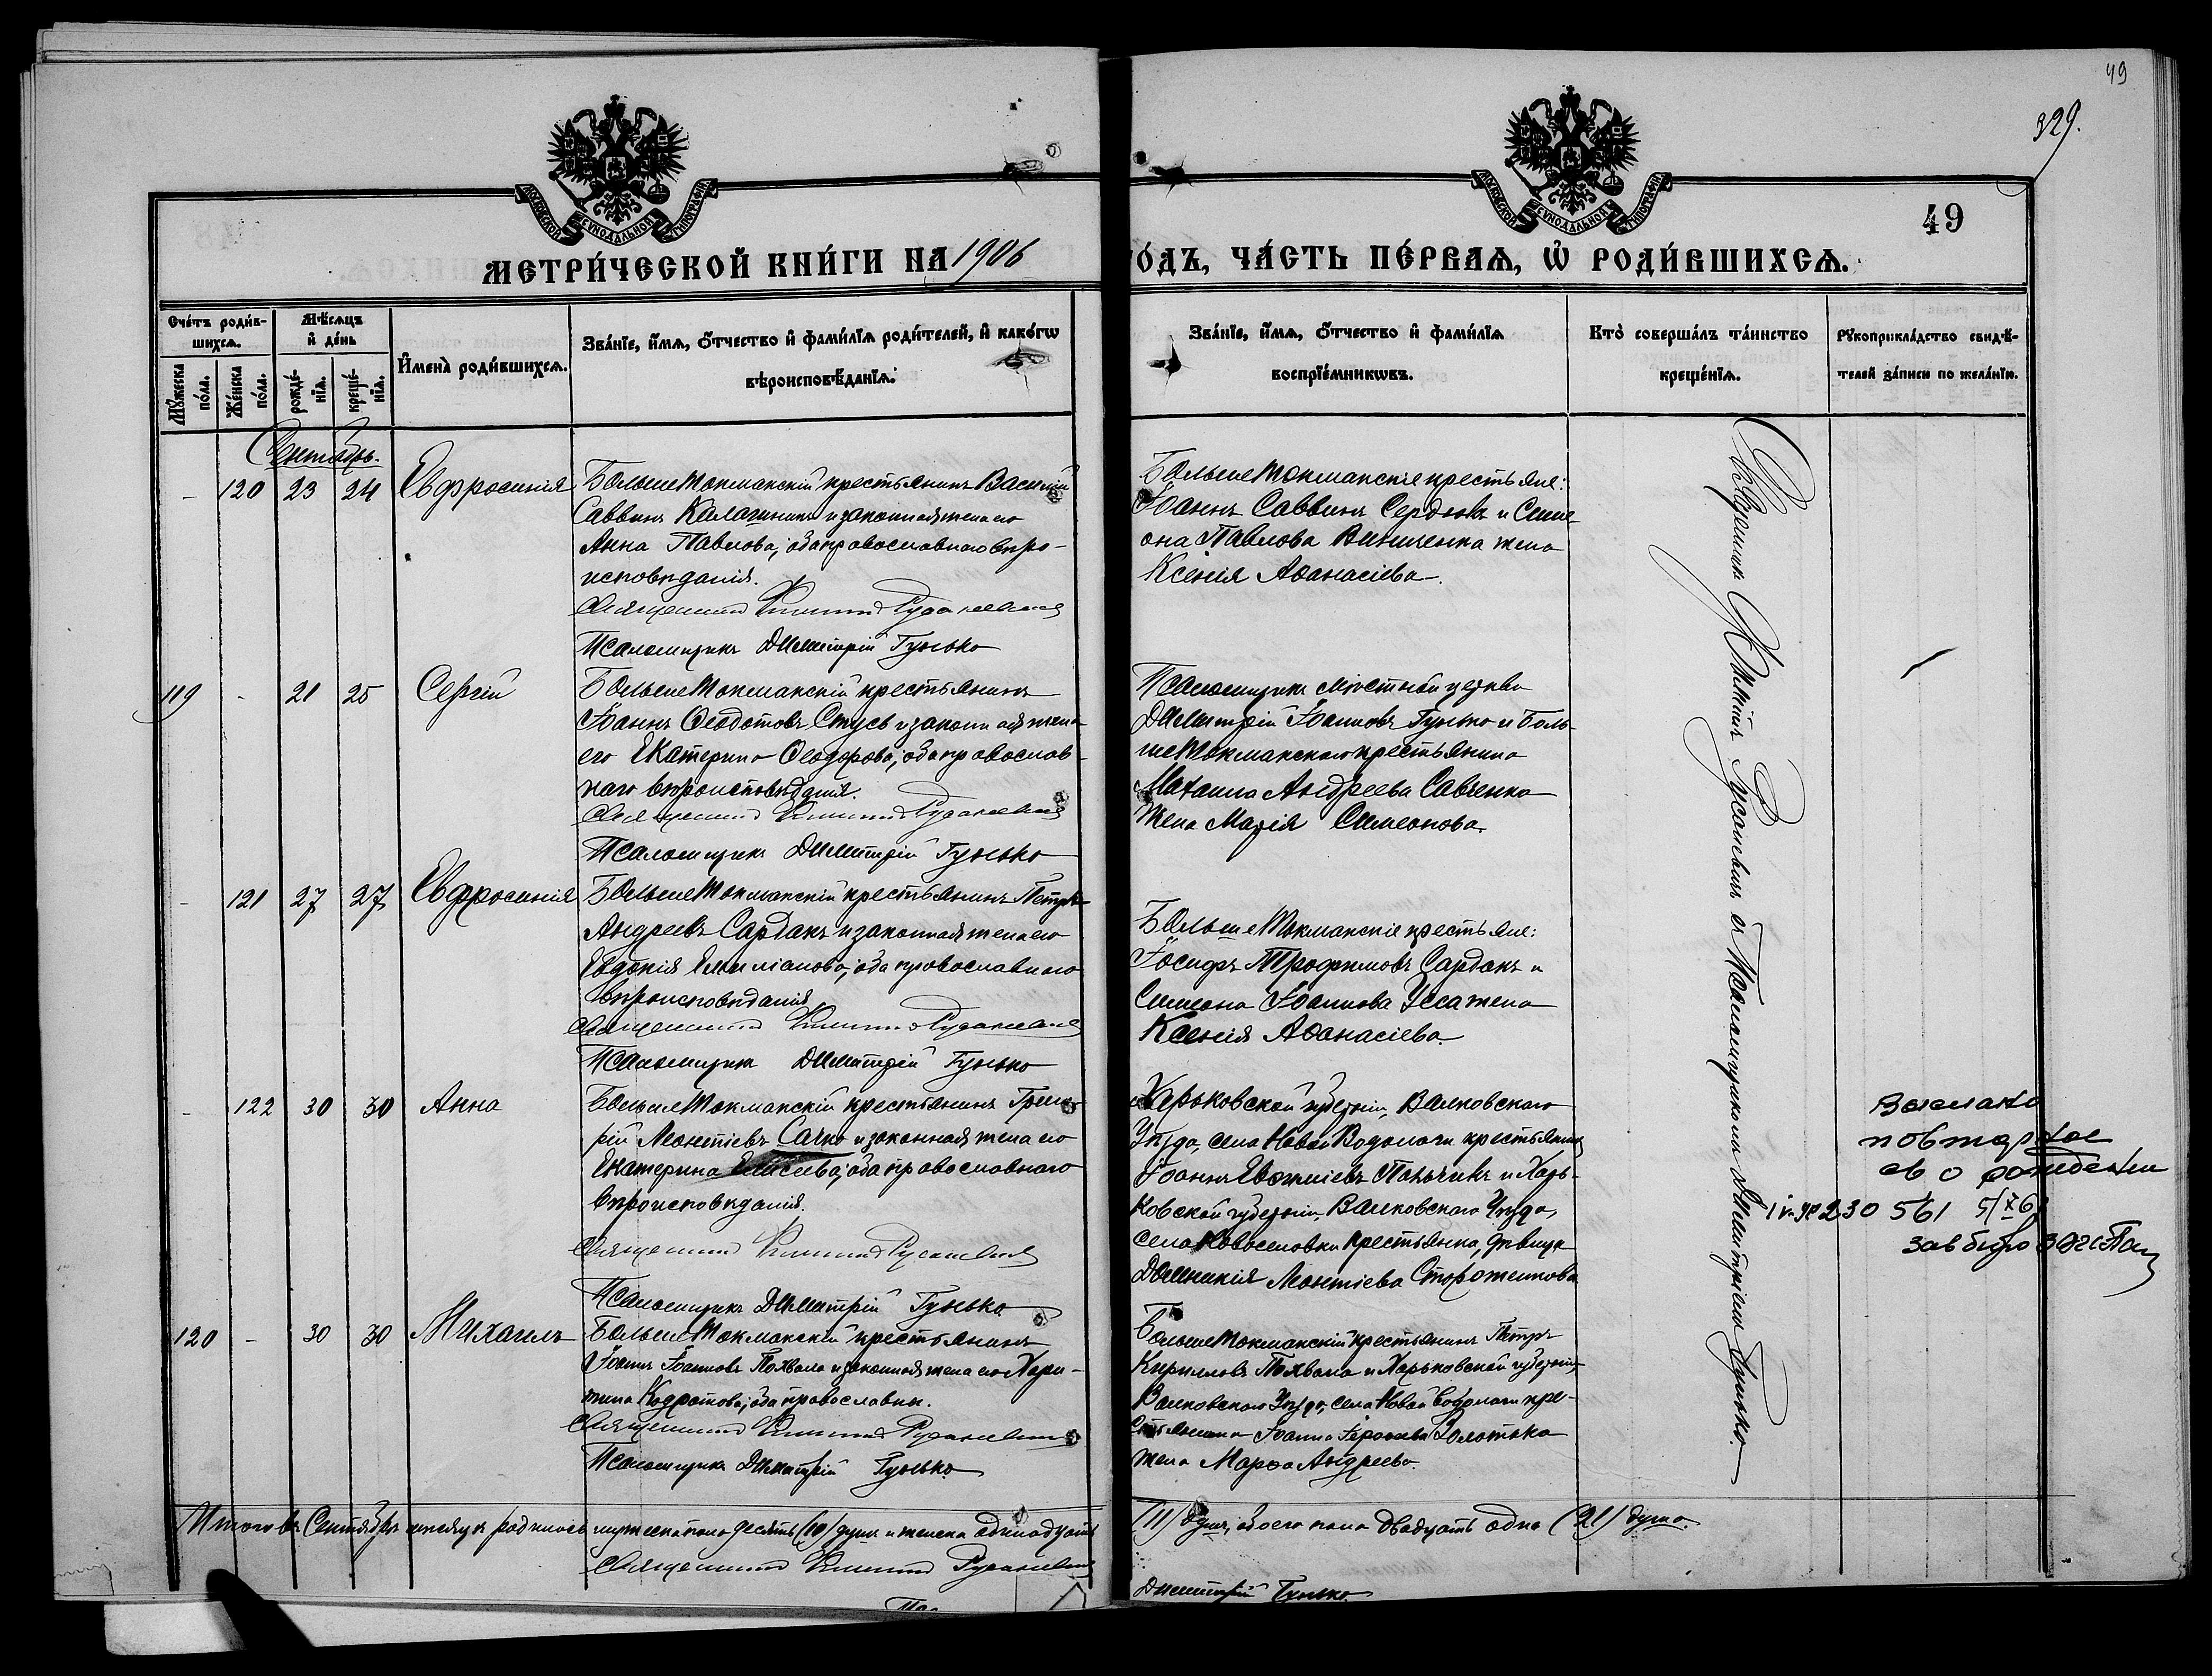 49
329.
МОСКОВСКОЙ СѴНОДАЛЬНОЙ ТИПОГРАФІИ
МЕТРИ́ЧЕСКОЙ КНИ́ГИ НА 1906
МОСКОВСКОЙ СѴНОДАЛЬНОЙ ТИПОГРАФІИ
49
ГО́ДЪ, ЧА́СТЬ ПЕ́РВАѦ, Ѡ҆ РОДИ́ВШИХСѦ.
Сче́тъ роди́в-
шихсѧ.
Мѣ́сѧцъ
и҆ де́нь
Му́жеска по́ла.
Же́нска по́ла.
рожде́-нїѧ.
креще́-нїѧ.
И҆мена̀ роди́вшихсѧ.
Зва́нїе, и҆́мѧ, ѻ҆́тчество и҆ фами́лїѧ роди́телей, и҆ како́гѡ
вѣроисповѣ́данїѧ.
Зва́нїе, и҆́мѧ, ѻ҆́тчество и҆ фами́лїѧ
воспрїе́мникѡвъ.
Кто̀ соверша́лъ та́инство
креще́нїѧ.
Рꙋкоприкла́дство свидѣ́-
телей за́писи по жела́нїю.
Сентябрь.
- 120 23 24 Евфросинія
БольшеТокмакскій крестьянинъ Василій
Саввинъ Калачникъ и законная жена его
Анна Павлова, оба православнаго вѣро-
исповѣданія.
Священникъ
Псаломщикъ Димитрій Гунько
БольшеТокмакскіе крестьяне:
Іоаннъ Саввинъ Сердюкъ и Симе-
она Павлова Винниченка жена
Ксенія Аѳанасіева.
119 - 21 25 Сергій
БольшеТокмакскій крестьянинъ
Іоаннъ Ѳеодотовъ Стусь и законная жена
его Екатерина Ѳеодорова, оба православ-
наго вѣроисповѣданія.
Священникъ
Псаломщикъ Димитрій Гунько
Псаломщикъ мѣстной церкви
Димитрій Іоанновъ Гунько и Боль-
шеТокмакскаго крестьянина
Матѳея Андреева Савченка
жена Марія Симеонова.
- 121 27 27 Евфросинія
БольшеТокмакскій крестьянинъ Петръ
Андреевъ Сардакъ и законная жена его
Евдокія Емиліанова, оба православнаго
вѣроисповѣданія.
Священникъ
Псаломщикъ Димитрій Гунько
БольшеТокмакскіе крестьяне:
Іосифъ Трофимовъ Сардакъ и
Симеона Іоаннова Усса жена
Ксенія Аѳанасіева.
- 122 30 30 Анна
БольшеТокмакскій крестьянинъ Григо-
рій Леонтіевъ Сачко и законная жена его
Екатерина Елисеева, оба православнаго
вѣроисповѣданія.
Священникъ
Псаломщикъ Димитрій Гунько
Харьковской губерніи, Валковскаго
Уѣзда, села Новой Водолаги крестьянинъ
Іоаннъ Евѳиміевъ и Харь-
ковской губерніи, Валковскаго Уѣзда,
села Новоселовки крестьянка, дѣвица
Домникія Леонтіева Стороженкова
повторное
св о рождении
230 561 5/X 6
зав бюро
120 - 30 30 Михаилъ
БольшеТокмакскій крестьянинъ
Іоаннъ Іоанновъ Похвала и законная жена его Хари-
тина Кодратова, оба православны.
Священникъ
Псаломщикъ Димитрій Гунько
БольшеТокмакскій крестьянинъ Петръ
Кирилловъ Похвала и Харьковской губерніи,
Валковскаго Уѣзда, села Новой Водолаги кре-
стьянина Іоанна Золотько
жена Марѳа Андреева.
Священникъ съ Псаломщикомъ Димитріемъ Гунько.
Итого въ Сентябрѣ мѣсяцѣ родилось мужеска пола десять (10) душъ и женска одинадцать
(11) душъ, обоего пола двадцать одна (21) душа.
Священникъ
Димитрій Гунько